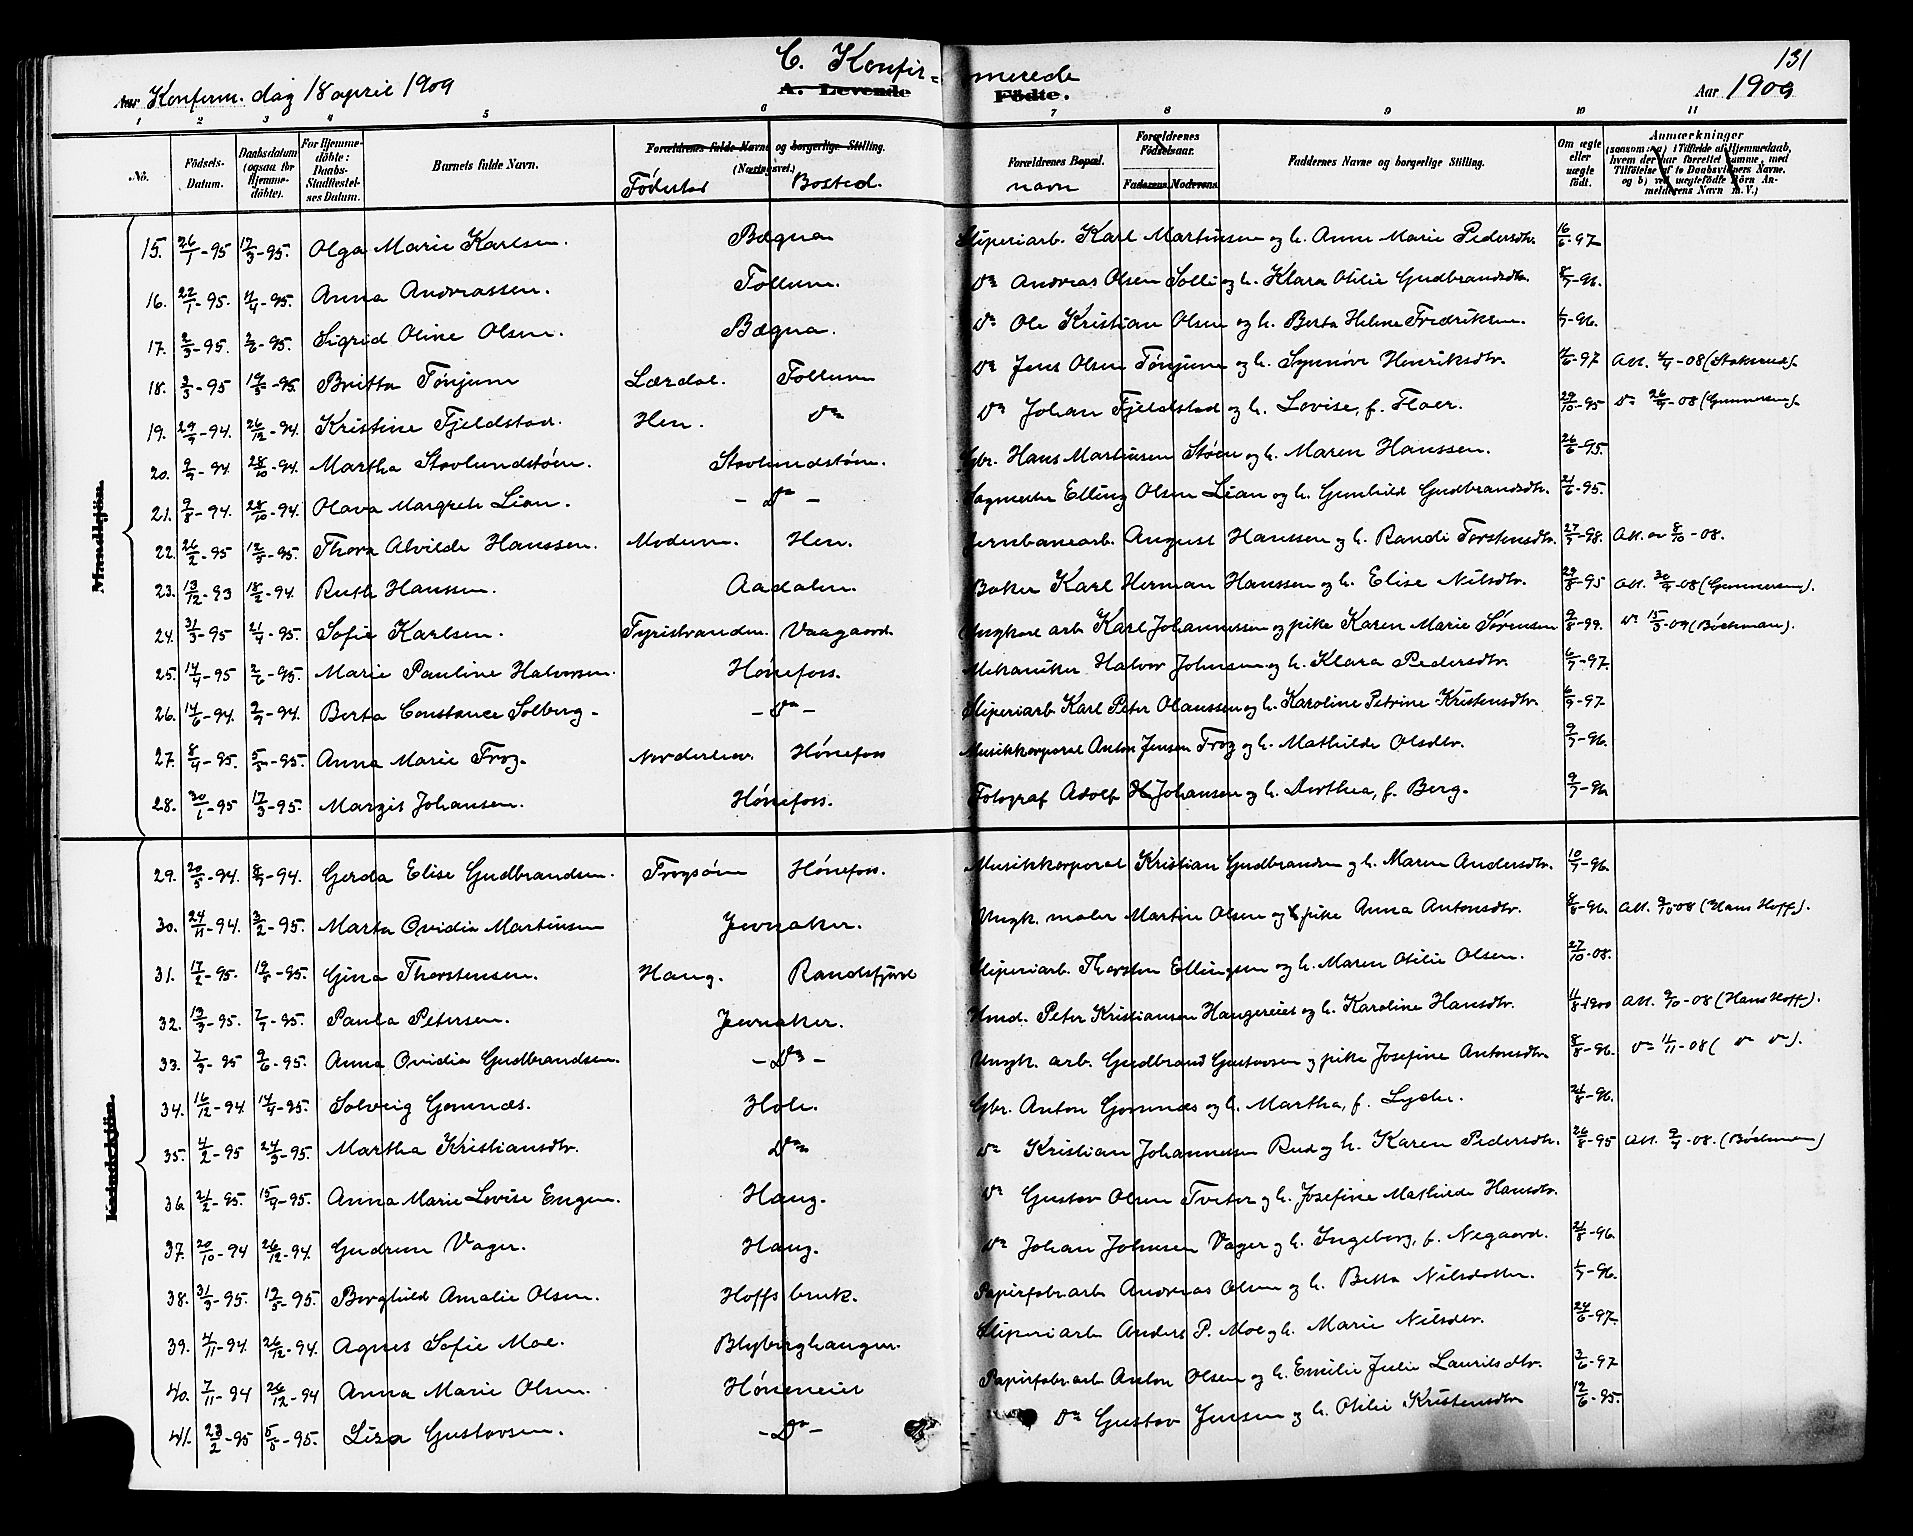 131
C. Konfirmerede
Aar Konferm. dag 18 april 1909 A. Levende Födte. Aar 1909
1 2 3 4 5 6 7 8 9 10 11
No. Födsels-Datum. Daabsdatum (ogsaa for Hjemmedöbte). For Hjemmedöbte: Daabs-Stadfæstelses Datum. Barnets fulde Navn. Forældrenes fulde Navne og borgerlige Stilling. Födested Bosted. Forældrenes Bopæl. navn Forældrenes Födselsaar. Faderens Moderens Faddernes Navne og borgerlige Stilling. Om ægte eller uægte födt. Anmærkninger
Mandkjön.
15. 26/1-95 17/3-95. Olga Marie Karlsen. Bægna Sliperiarb. Karl Martinsen og h. Anne Marie Pedersdtr. 16/6-97
16. 22/1-95. 4/4-95. Anna Andreassen. Follum. do Andreas Olsen Solli og h. Klara Otilie Gudbrandsdtr. 8/7-96.
17. 2/3-95. 3/6-95. Sigrid Oline Olsen. Bægna. do Ole Kristian Olsen og h. Berta Heline Fredriksen. 1/7-96.
18. 3/3-95 19/5-95. Britta Tönjum Lærdal. Follum do Jens Olsen Tönjum og h. Synnöve Henriksdtr. 4/6-97 Att. 4/4-08 (Stoksrud).
19. 29/9-94. 26/12-94. Kristine Fjeldstad. Hen. do do Johan Fjeldstad og h. Lovise, f. Floer. 29/10-95 do 26/9-08 (Gunnersen).
20. 9/9-94 28/10-94. Martha Stovlundstöen. Stovlundstöen. Gbr. Hans Martinsen Stöen og h. Maren Hanssen. 26/6-95.
21. 9/8-94. 28/10-94. Olava Margrete Lian. - Do - Sagmester Elling Olsen Lian og h. Gunhild Gudbrandsdtr. 21/6-95.
22. 26/2-95 12/5-95. Thora Alvilde Hanssen. Modum. Hen. Jernbanearb. August Hanssen og h. Randi Torstensdtr. 27/7-98. Att. av 8/10-08.
23. 13/12-93 18/2-94. Ruth Hanssen. Aadalen. Baker Karl Herman Hanssen og h. Elise Nilsdtr. 29/8-95 Att. 30/9-08 (Gunnersen).
24. 31/3-95 21/4-95. Sofie Karlsen. Tyristranden. Vaagaard Ungkarl arb. Karl Johannessen og pike Karen Marie Sörensen 9/8-99. do 15/3-09 (Böckman).
25. 14/4-95 2/6-95. Marie Pauline Halvorsen. Hönefoss. Mekaniker Halvor Johnsen og h. Klara Pedersdtr. 6/7-97.
26. 14/6-94. 2/9-94. Berta Constance Solberg. - Do - Sliperiarb. Karl Peter Olaussen og h. Karoline Petrine Kristensdtr. 6/9-97
27. 8/4-95. 5/5-95. Anna Marie Frog. Norderhov. Hönefoss Musikkorporal Anton Jensen Frog og h. Mathilde Olsdtr. 9/7-96.
28. 30/1-95 17/3-95. Margit Johansen. Hönefoss. Fotograf Adolf Johansen og h. Dorthea, f. Berg. 9/7-96.
Kvindekjön.
29. 20/5-94. 8/7-94. Gerda Elise Gudbrandsen. Frogsöen Hönefoss. Musikkorporal Kristian Gudbrandsen og h. Maren Andersdtr. 10/7-96.
30. 24/11-94. 3/2-95. Marta Ovidia Martinsen Jevnaker. Ungk. maler Martin Olsen og pike Anna Antonsdtr. 8/8-96. Att. 9/10-08 (Hans Hoff).
31. 17/2-95. 19/5-95. Gina Thorstensen. Haug. Randsfjord Sliperiarb. Thorsten Ellingsen og h. Maren Otilie Olsen. 27/10-08.
32. 13/3-95. 7/7-95. Paula Petersen. Jevnaker. Hmd. Peter Kristiansen Haugereiet og h. Karoline Hansdtr. 11/8-1900 Att. 9/10-08 (Hans Hoff).
33. 7/3-95 9/6-95. Anna Ovidia Gudbrandsen. - Do - Ungk. arb. Gudbrand Gustavsen og pike Josefine Antonsdtr. 8/8-96. do 1/11-08 ( do do ).
34. 16/12-94 14/4-95. Solveig Gomnæs. Hole. Gbr. Anton Gomnæs og h. Martha, f. Lyder. 21/8-96.
35. 4/2-95 24/3-95. Martha Kristiansdtr. Do do Kristian Johannessen Rud og h. Karen Pedersdtr. 26/8-95 Att. 9/9-08. (Böckman)
36. 21/2-95. 15/9-95. Anna Marie Lovise Engen. Haug. do Gustav Olsen Tveter og h. Josefine Mathilde Hansdtr.
37. 20/10-94 26/12-94. Gudrun Vager. Haug. do Johan Johnsen Vager og h. Ingeborg, f. Negaard. 21/8-96.
38. 31/3-95. 19/5-95. Borghild Amalie Olsen. Hoffsbruk. Papirfabr.arb. Andreas Olsen og h. Betta Nilsdatter. 1/7-96.
39. 4/11-94. 26/12-94. Agnes Sofie Moe. Blyberghaugen. Sliperiarb. Anders P. Moe og h. Marie Nilsdtr. 24/6-97.
40. 7/11-94 26/12-94 Anna Marie Olsen. Höneneiet Papirfabr.arb. Anton Olsen og h. Emilie Julie Lauritsdtr. 3/6-97
41. 23/2-95 5/5-95. Lisa Gustavsen. - Do - do Gustav Jensen og h. Otilie Kristensdtr 12/6-95.